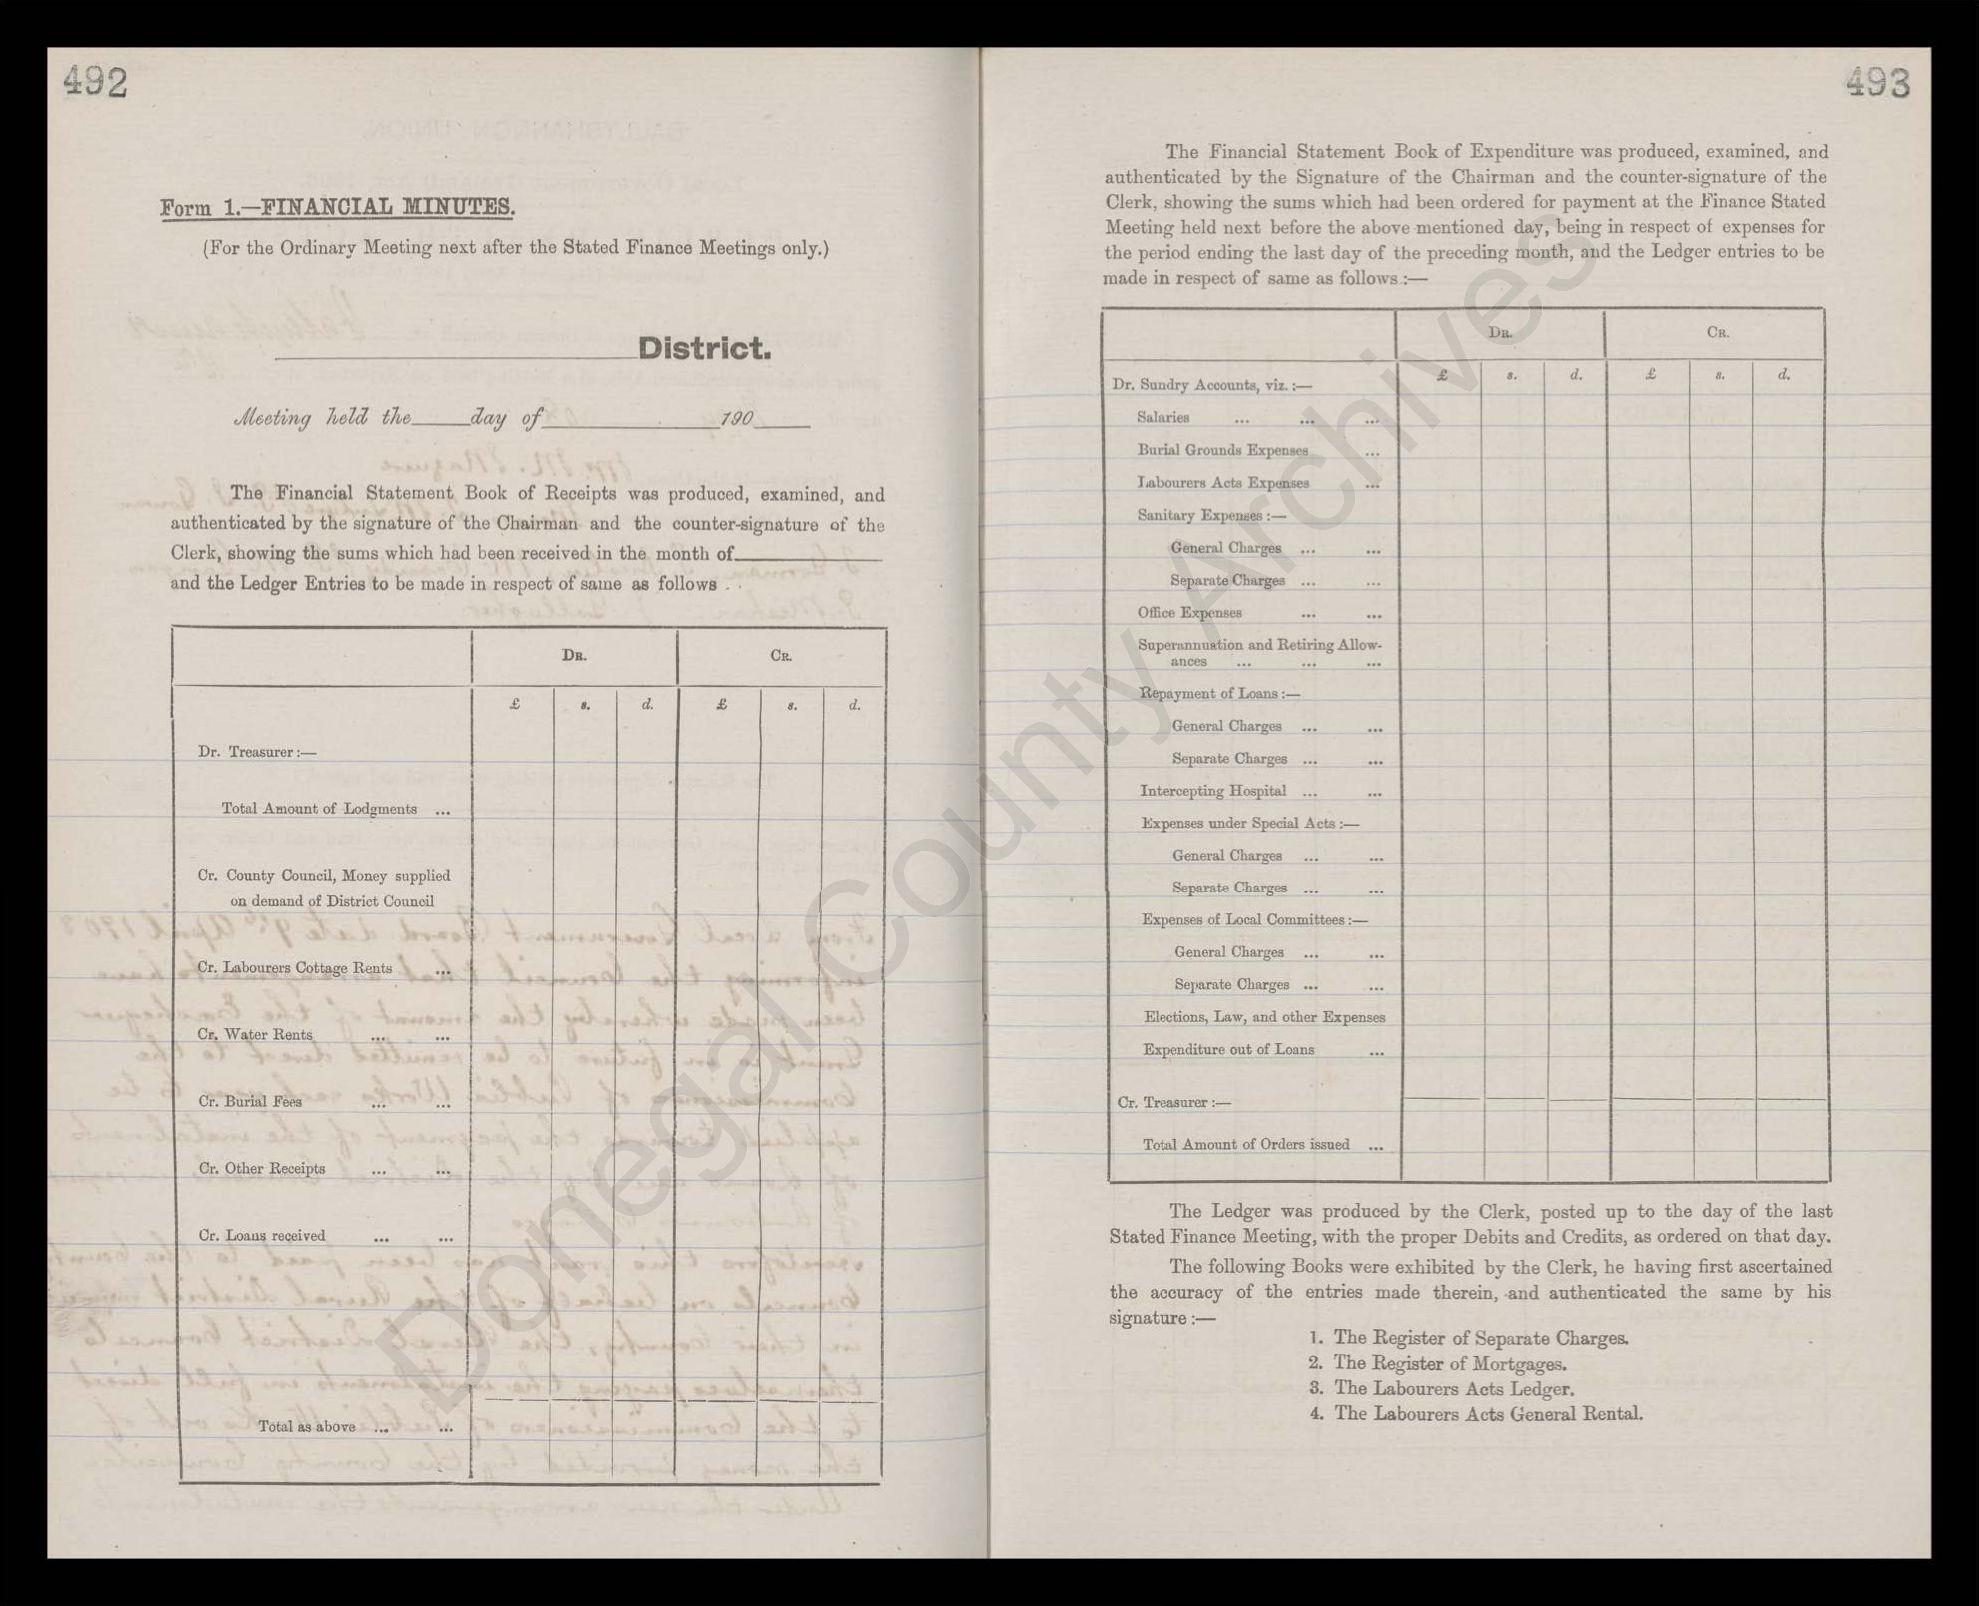 492
Form 1.—FINANCIAL MINUTES.
(For the Ordinary Meeting next after the Stated Finance Meetings only.)
District.
Meeting held the day of 190
The Financial Statement Book of Receipts was produced, examined, and
authenticated by the signature of the Chairman and the counter-signature of the
Clerk, showing the sums which had been received in the month of
and the Ledger Entries to be made in respect of same as follows . .
DR. CR.
£ s. d. £ s. d.
Dr. Treasurer :—
Total Amount of Lodgments ...
Cr. County Council, Money supplied
on demand of District Council
Cr. Labourers Cottage Rents ...
Cr. Water Rents ... ...
Cr. Burial Fees ... ...
Cr. Other Receipts ... ...
Cr. Loans received ... ...
Total as above ... ...
493
The Financial Statement Book of Expenditure was produced, examined, and
authenticated by the Signature of the Chairman and the counter-signature of the
Clerk, showing the sums which had been ordered for payment at the Finance Stated
Meeting held next before the above mentioned day, being in respect of expenses for
the period ending the last day of the preceding month, and the Ledger entries to be
made in respect of same as follows :—
DR. CR.
£ s. d. £ s. d.
Dr. Sundry Accounts, viz. :—
Salaries ... ... ...
Burial Grounds Expenses ...
Labourers Acts Expenses ...
Sanitary Expenses :—
General Charges ... ...
Separate Charges ... ...
Office Expenses ... ...
Superannuation and Retiring Allow-
ances ... ... ...
Repayment of Loans :—
General Charges ... ...
Separate Charges ... ...
Intercepting Hospital ... ...
Expenses under Special Acts :—
General Charges ... ...
Separate Charges ... ...
Expenses of Local Committees :—
General Charges ... ...
Separate Charges ... ...
Elections, Law, and other Expenses
Expenditure out of Loans ...
Cr. Treasurer :—
Total Amount of Orders issued ...
The Ledger was produced by the Clerk, posted up to the day of the last
Stated Finance Meeting, with the proper Debits and Credits, as ordered on that day.
The following Books were exhibited by the Clerk, he having first ascertained
the accuracy of the entries made therein, and authenticated the same by his
signature :—
1. The Register of Separate Charges.
2. The Register of Mortgages.
3. The Labourers Acts Ledger.
4. The Labourers Acts General Rental.
Donegal County Archives